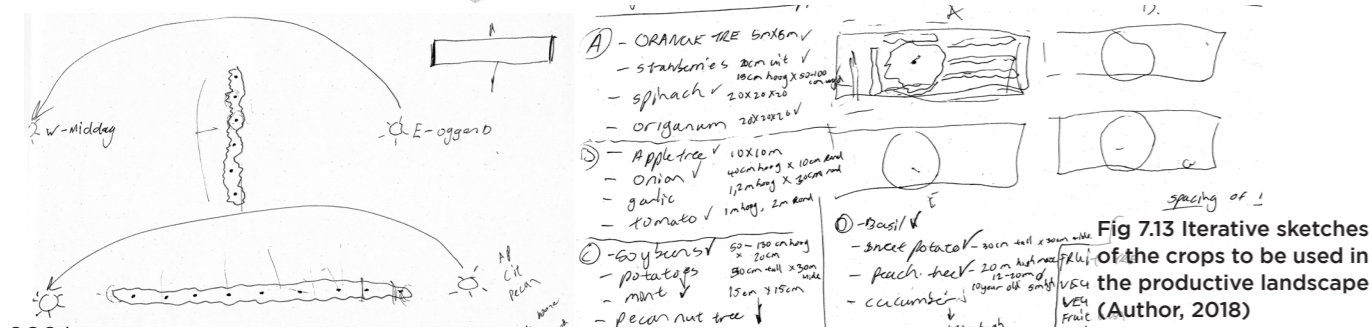 W-Middag
E-oggend
A
(A) - ORANGE TRE 5m x 6m ✓
- stawberries 20cm uit ✓
15cm hoog x 50-100
- spinach ✓ 20x20x20
- origanum 20x20x20 ✓
(B) - Apple tree ✓ 10x10m
- onion ✓ 40cm hoog x 10cm Rond
- garlic 1,2m hoog x 30cm rond
- tomato ✓ 1m hoog, 2m Rond
(C) - Soybens ✓ 50-130 cm hoog
x 20cm
- potatoes 50cm tall x 30cm wide
- mint ✓ 15cm x 15cm
- pecan nut tree
AP
Cit
Pecan
spacing of
(D) - Basil ✓
- sweet potato ✓ - 30cm tall x 30cm wide
- peach tree ✓ - 20m high max
12-20m
10 year old 5m high
- cucumber
VEG
VEG
Fruit
Fig 7.13 Iterative sketches
of the crops to be used in
the productive landscape
(Author, 2018)